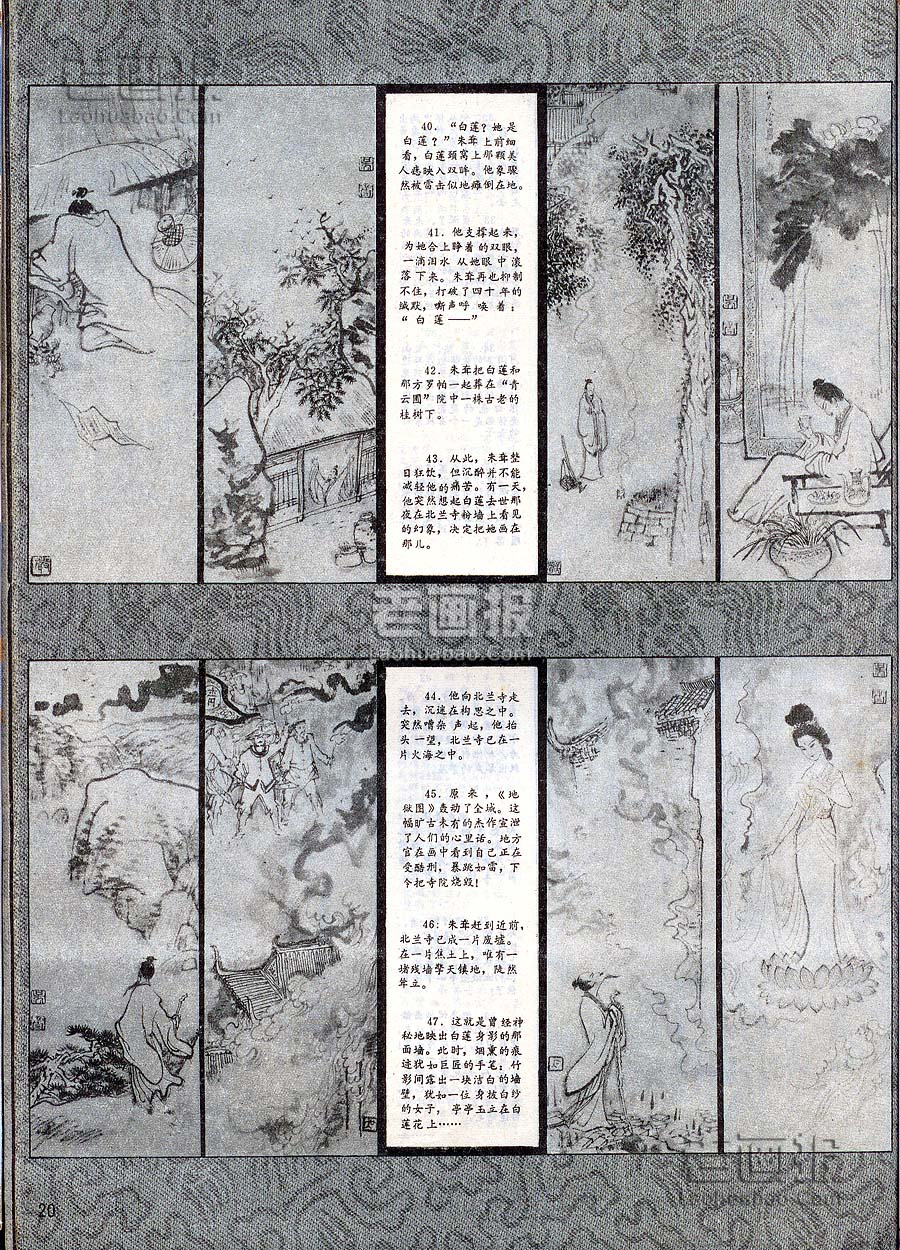 老画报
Laohuabao.Com
40．“白莲？她是
白莲？”朱耷上前细
看，白莲颈窝上那颗美
人痣映入双眸。他象骤
然被雷击似地瘫倒在地。
41．他支撑起来，
为她合上睁着的双眼，
一滴泪水从她眼中滚
落下来。朱耷再也抑制
不住，打破了四十年的
缄默，嘶声呼唤着：
“白莲——”
42．朱耷把白莲和
那方罗帕一起葬在“青
云圃”院中一株古老的
桂树下。
43．从此，朱耷整
日狂饮，但沉醉并不能
减轻他的痛苦。有一天，
他突然想起白莲去世那
夜在北兰寺粉墙上看见
的幻象，决定把她画在
那儿。
老画报
laohuabao.com
44．他向北兰寺走
去，沉迷在构思之中。
突然嘈杂声起，他抬
头一望，北兰寺已在一
片火海之中。
45．原来，《地
狱图》轰动了全城。这
幅旷古未有的杰作宣泄
了人们的心里话。地方
官在画中看到自己正在
受酷刑，暴跳如雷，下
令把寺院烧毁！
46．朱耷赶到近前，
北兰寺已成一片废墟。
在一片焦土上，唯有一
堵残墙擎天镇地，陡然
耸立。
47．这就是曾经神
秘地映出白莲身影的那
面墙。此时，烟熏的痕
迹犹如巨匠的手笔；竹
影间露出一块洁白的墙
壁，犹如一位身披白纱
的女子，亭亭玉立在白
莲花上……
老画报
Laohuabao.Com
20